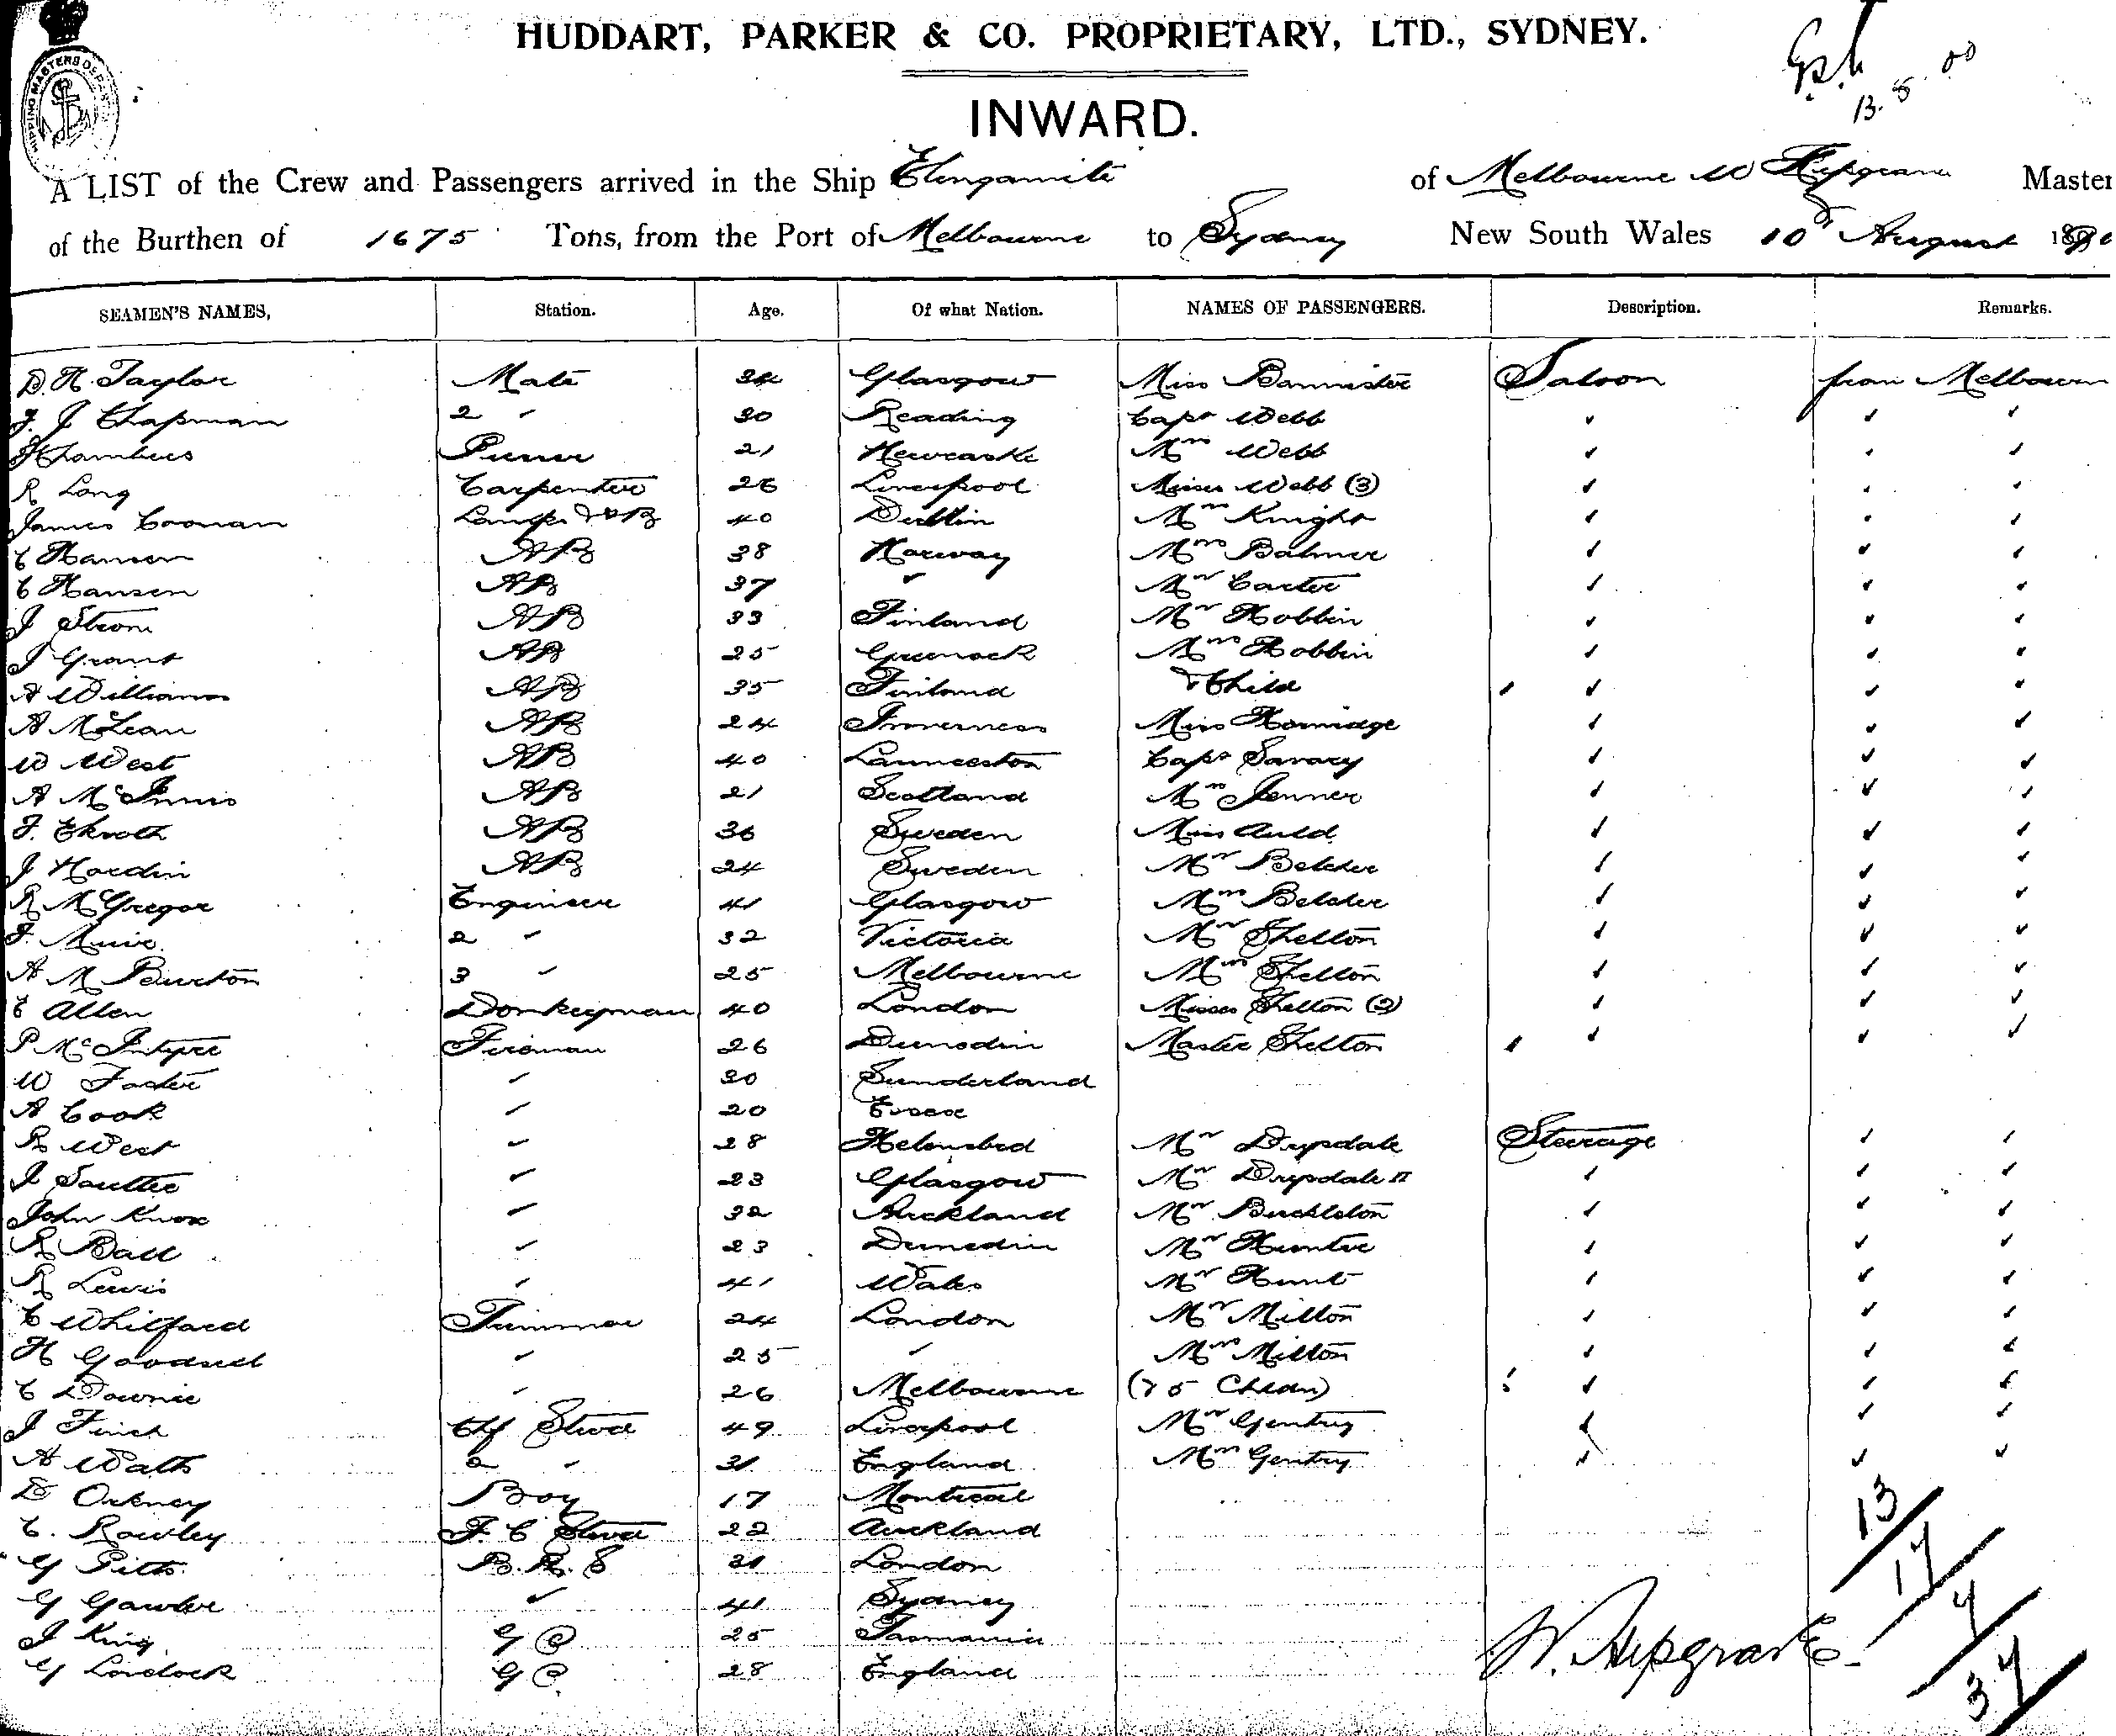 HUDDART, PARKER & CO. PROPRIETARY, LTD., SYDNEY.
13. 8. 00
INWARD.
A LIST of the Crew and Passengers arrived in the Ship Elingamite of Melbourne W Hipgrave Master
of the Burthen of 1675 Tons, from the Port of Melbourne to Sydney New South Wales 10th August
SEAMEN'S NAMES, Station. Age. Of what Nation. NAMES OF PASSENGERS. Description. Remarks.
D. H. Taylor Mate 34 Glasgow Miss Bannister Saloon from Melbourn
F. J Chapman 2 " 30 Reading Capt Webb " " "
Chambers Purser 21 Newcastle Mrs Webb " " "
R Long Carpenter 26 Liverpool Misses Webb (3) " " "
James Coonan Lamps & AB 40 Dublin Mrs Knight " " "
C Hansen AB 38 Norway Mrs Balmer " " "
C Hansen AB 37 " Mr Carter " " "
J Strom AB 33 Finland Mr Hobbin " " "
J Grant AB 25 Greenock Mrs Hobbin " " "
A Williams AB 35 Finland & Child " " "
A McLean AB 24 Inverness Miss Hormidge " " "
W West AB 40 Launceston Capt Savary " " "
A McInnis AB 21 Scotland Mrs Jenner " " "
F. Ekroth AB 36 Sweden Miss Auld " " "
J Nordin AB 24 Sweden Mr Belcher " " "
R McGregor Engineer 41 Glasgow Mrs Belcher " " "
F. Muir 2 " 32 Victoria Mr Shelton " " "
A M Peurton 3 " 25 Melbourne Mrs Shelton " " "
E Allen Donkeyman 40 London Misses Shelton (2) " " "
P McIntyre Fireman 26 Dunedin Master Shelton " " "
W Foster " 30 Sunderland
A Cook " 20 Essex
R West " 28 Mr Drysdale Steerage " "
J Soutter " 23 Glasgow Mr Drysdale II " " "
John Knox " 32 Auckland Mr Buckleton " " "
R Ball " 23 Dunedin Mr Hunter " " "
R Lewis " 41 Wales Mr Hunt " " "
C Whitford Trimmer 24 London Mr Milton " " "
H Goodsell " 25 " Mrs Milton " " "
C Downie " 26 Melbourne (& 5 Chldn) " " "
J Finch Chf Stwd 49 Liverpool Mr Gentry " " "
A Watts 2 " 31 England Mrs Gentry " " "
D Orkney Boy 17 Montreal
C. Rowley F. C Stwd 22 Auckland
G Pitts B. R. S 31 London
G Gawler " 41 Sydney
J King G S 25 Tasmania
G Lovelock G S 28 England
W. Hipgrave
13
17
4
34